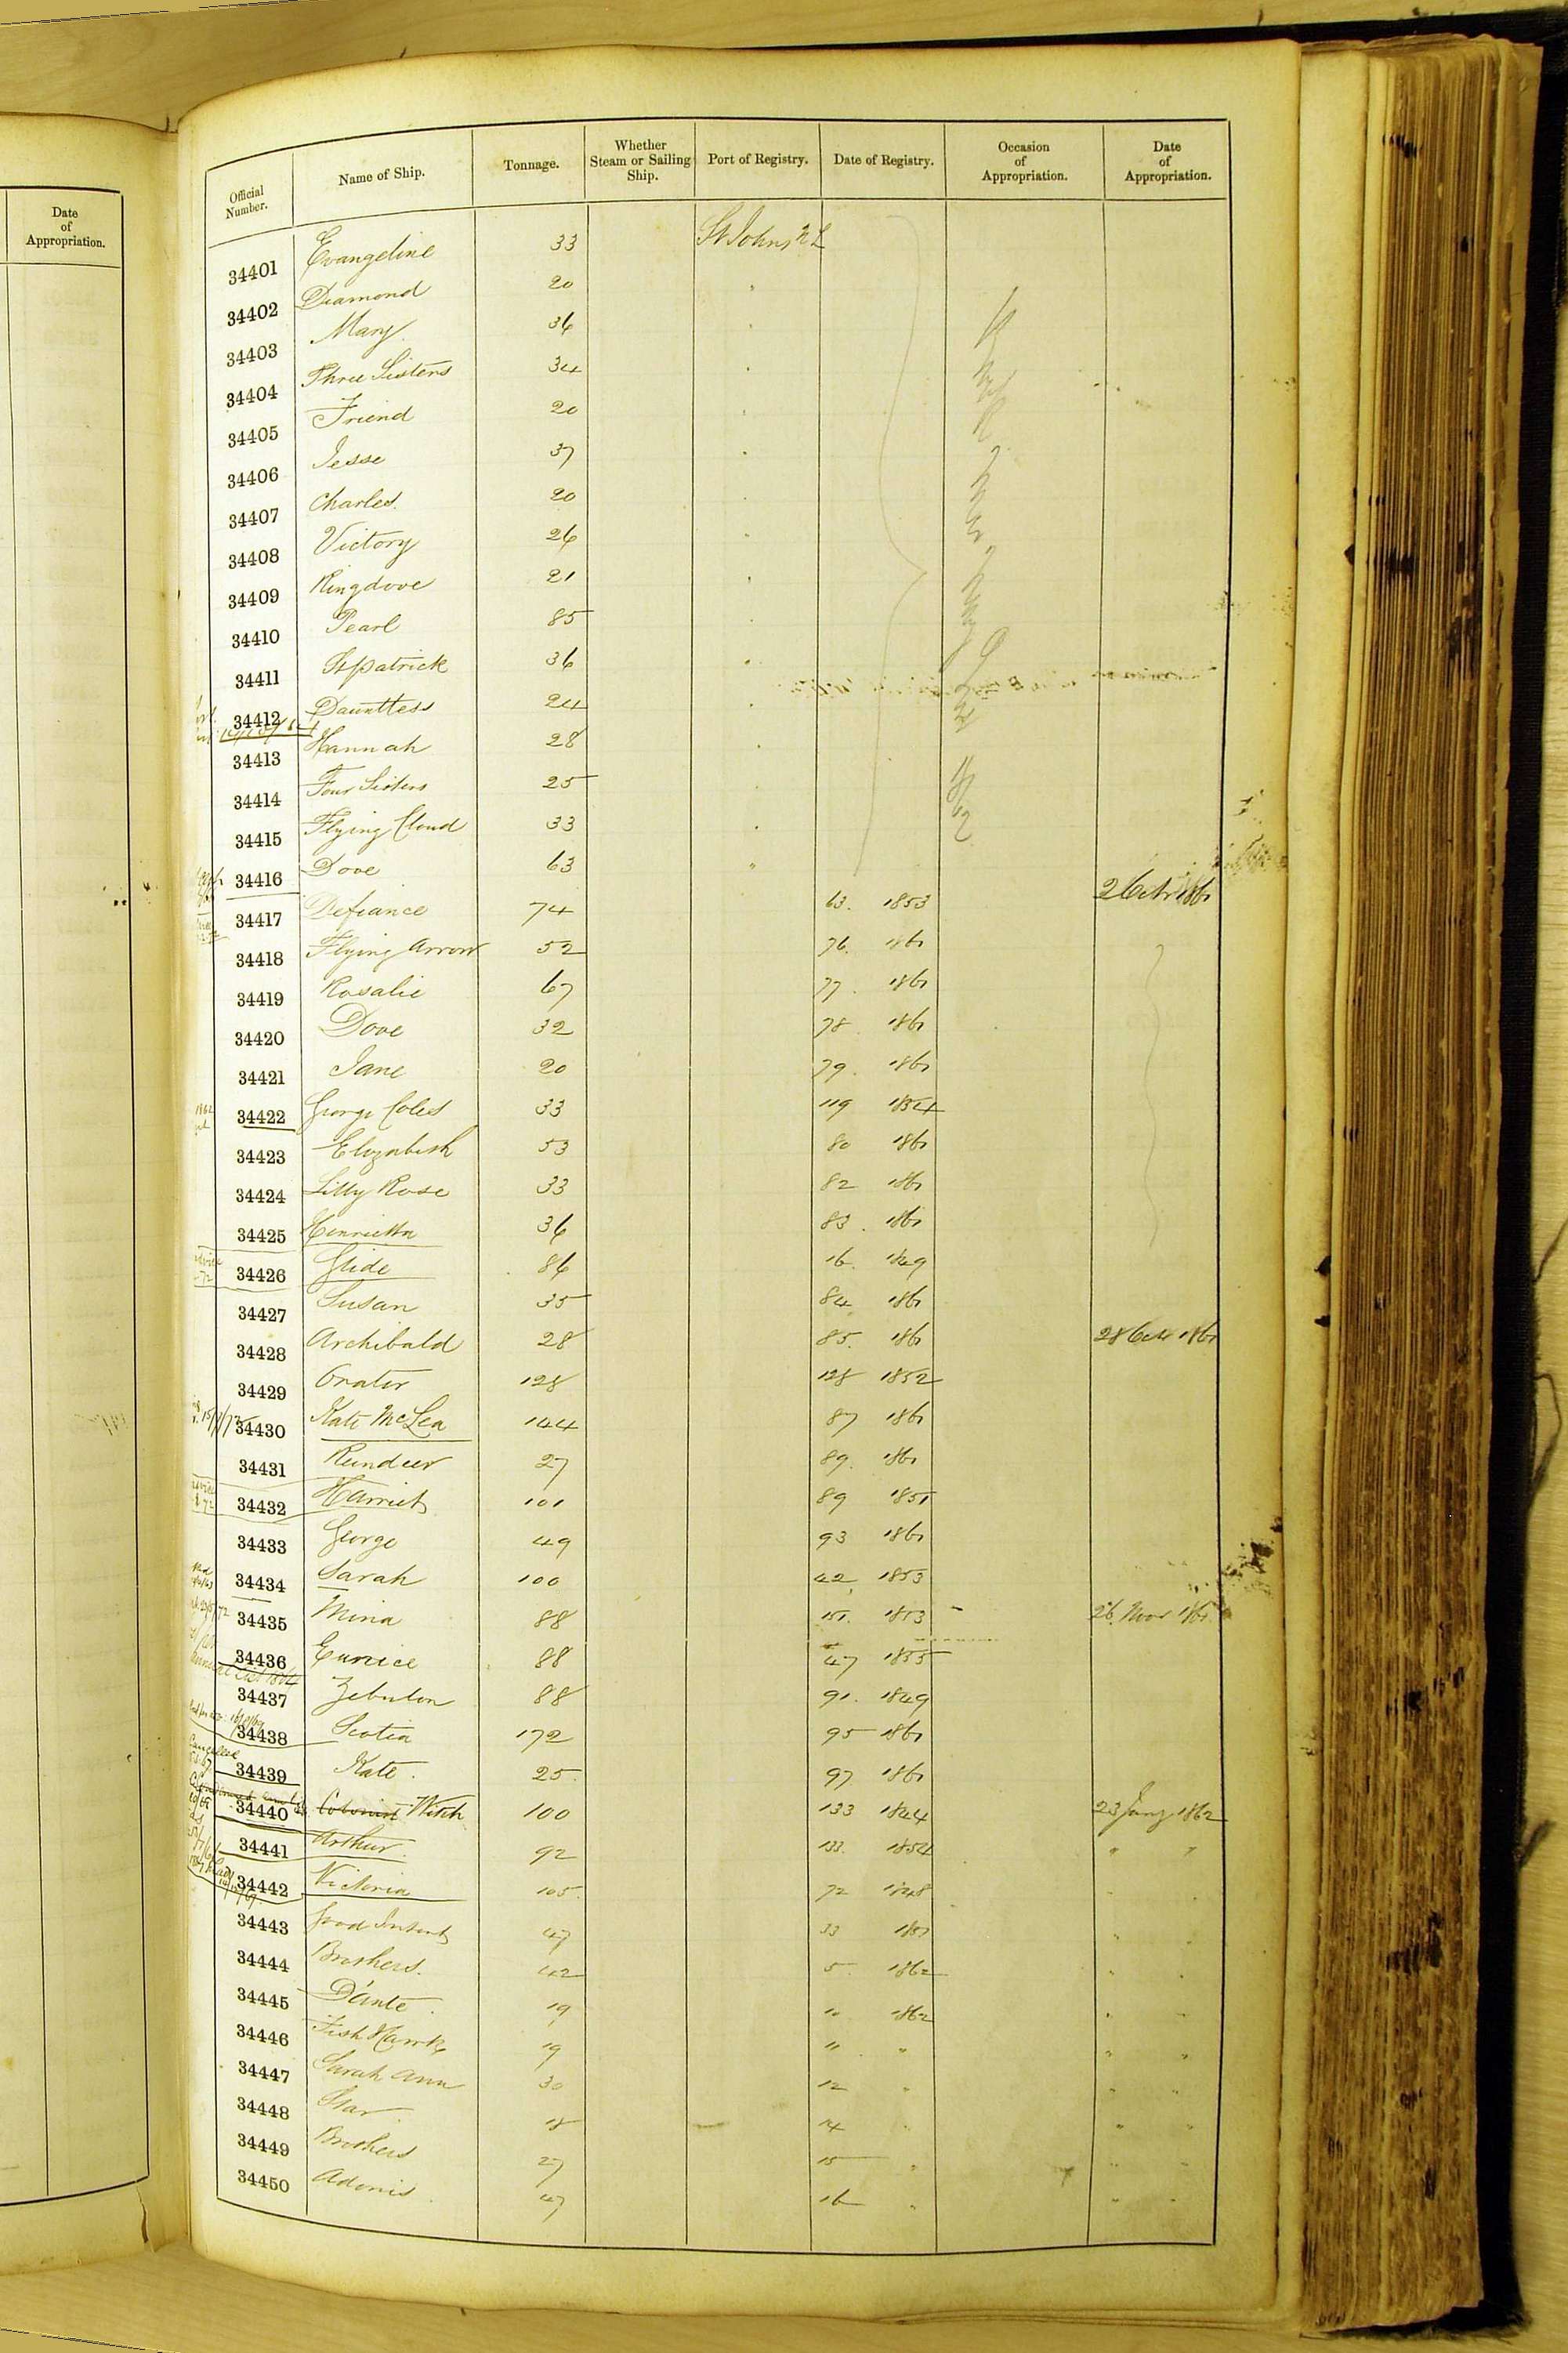 Date of Appropriation.
Official Number. Name of Ship. Tonnage. Whether Steam or Sailing Ship. Port of Registry. Date of Registry. Occasion of Appropriation. Date of Appropriation.
34401 Evangeline 33 St Johns N L
34402 Diamond 20 "
34403 Mary 36 "
34404 Three Sisters 34 "
34405 Friend 20 "
34406 Jesse 37 "
34407 Charles. 20 "
34408 Victory 26 "
34409 Ringdove 21 "
34410 Pearl 85 "
34411 St patrick 36 "
34412 Dauntless 24 "
34413 Hannah 28 "
34414 Four Sisters 25 "
34415 Flying Cloud 33 "
34416 Dove 63 "
34417 Defiance 74 63. 1853 2 Octr 1861
34418 Flying Arrow 52 76. 1861
34419 Rosalie 67 77. 1861
34420 Dove 32 78 1861
34421 Jane 20 79. 1861
34422 George Coles 33 119 1854
34423 Elizabeth 53 80 1861
34424 Lilly Rose 33 82 1861
34425 Henrietta 36 83. 1861
34426 Glide 86 16. 1849
34427 Susan 35 84 1861
34428 Archibald 28 85. 1861 28 Octr 1861
34429 Orator 128 128 1852
34430 Kate McLea 144 87 1861
34431 Reindeer 27 89. 1861
34432 Harriet 101 89 1851
34433 George 49 93 1861
34434 Sarah 100 42 1853
34435 Mina 88 151. 1853 26 Novr 1861
34436 Eunice 88 47 1855
34437 Zebulon 88 91. 1849
34438 Scotia 172 95 1861
34439 Kate. 25. 97 1861
34440 Witch 100 133 1844 23 Jany 1862
34441 Arthur. 92 133. 1854 " "
34442 Victoria 105. 72 1848 " "
34443 Good Intent 47 33 " "
34444 Brothers. 42 5 1862 " "
34445 D'ante. 19 1862 " "
34446 Fish Hawk 19 11 " " "
34447 Sarah Ann 30 12 " " "
34448 Star 18 14 " " "
34449 Brothers 27 15 " " "
34450 Adonis 47 16 " " "